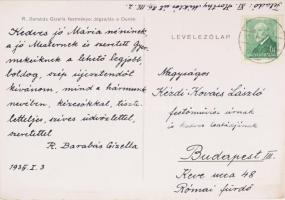 R. Barabás Gizella festménye: Jégzajlás a Dunán
LEVELEZŐLAP
Kedves jó Mária néninek,
a jó Mesternek és szeretett Gyer-
mekeiknek a lehető legjobb,
boldog, szép újesztendőt
kívánom, mind a hármunk
nevében, kézcsókkal, tisz-
telettel, szíves üdvözlettel,
szeretettel
R. Barabás Gizella
1936. I. 3
Nagyságos
Kézdi-Kovács László
festőművész úrnak
és kedves családjának
Budapest III.
Keve ucca 48
Római fürdő